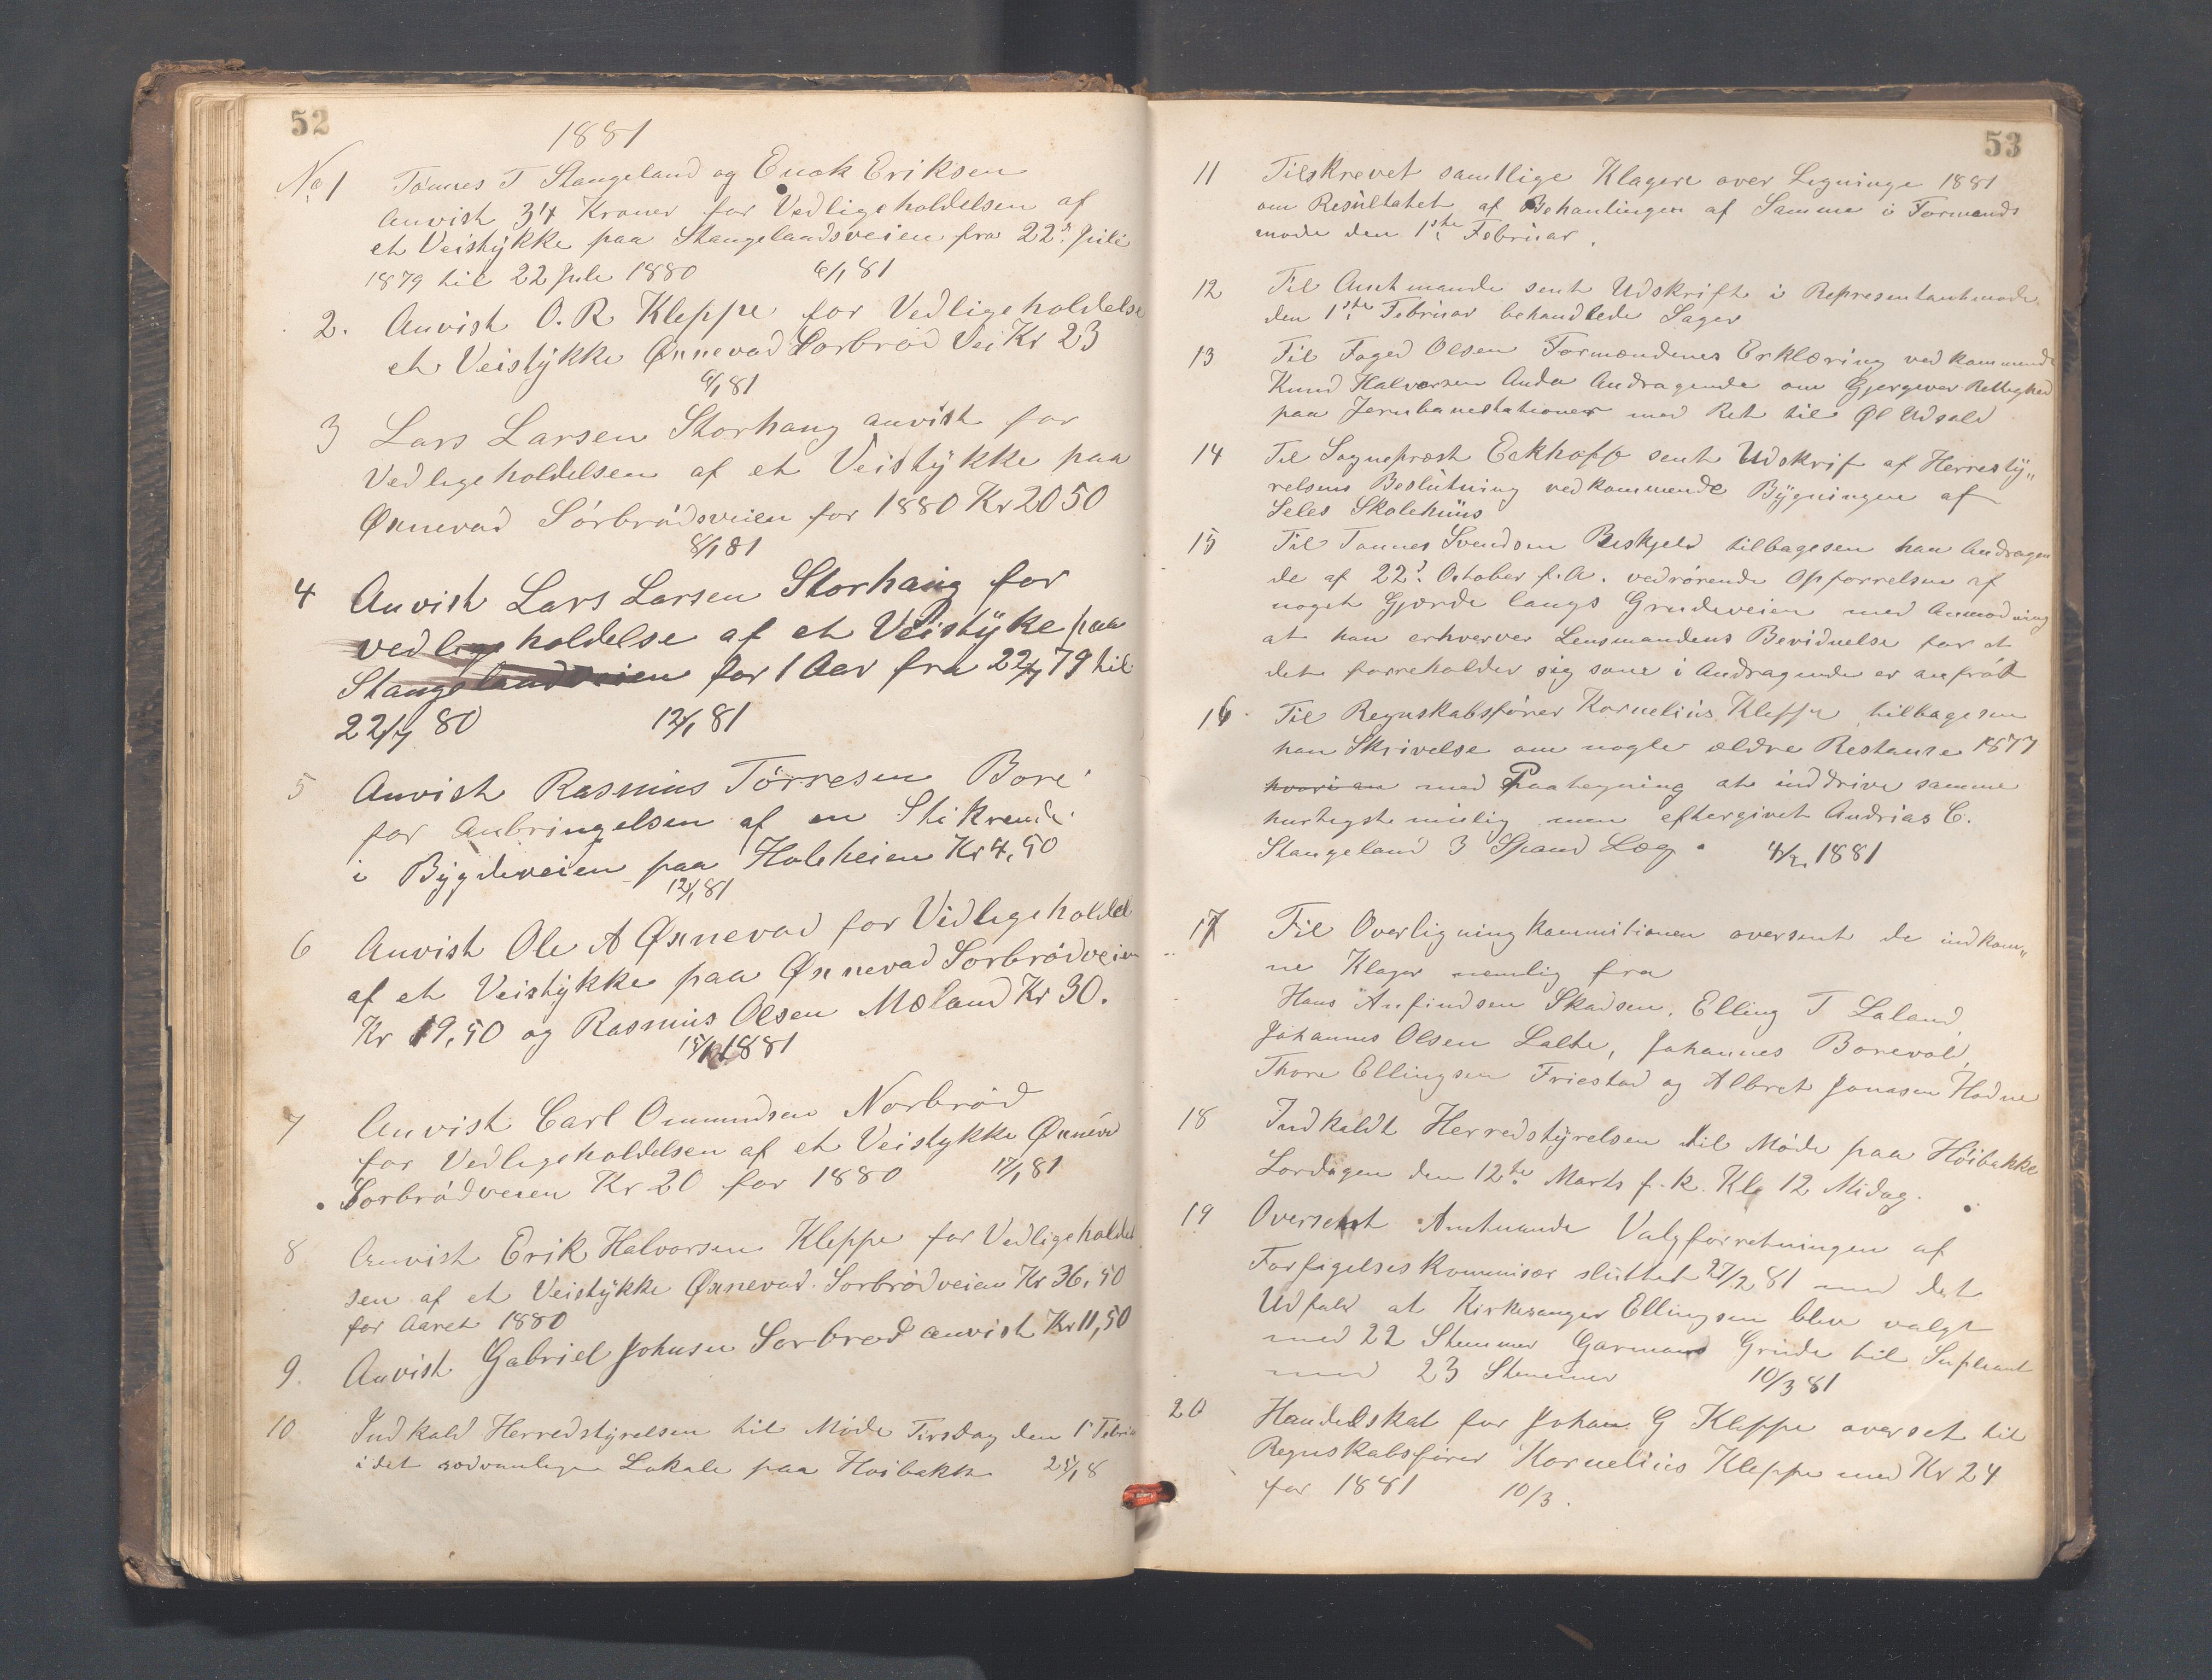 52
1881
No 1 Tönnes T Stangeland og Enok Eriksen
Anvist 34 Kroner for Vedligeholdelsen af
et Veistykke paa Stangelandsveien fra 22d Juli
1879 til 22 Jule 1880 6/1 81
2. Anvist O. R. Kleppe for Vedligeholdelse
et Veistykke Øxnevad Sorbrød Vei Kr 23
6/1 81
3 Lars Larsen Storhaug anvist for
Vedligeholdelsen af et Veistykke paa
Øxnevad Sörbrödsveien for 1880 Kr 20 50
8/1 81
4 Anvist Lars Larsen Storhaug for
vedligeholdelse af et Veistyke paa
Stangelandsveien for 1 Aar fra 22/7 79 til
22/7 80 12/1 81
5 Anvist Rasmus Törresen Bore
for Anbringelsen af en Stikrende
i Bygdeveien paa Holeheien Kr 4,50
12/1 81
6 Anvist Ole A Øxnevad for Vidligeholdel
af et Veistykke paa Øxnevad Sorbrödveien
Kr 19,50 og Rasmus Olsen Mæland Kr 30.
15/1 1881
7 Anvist Carl Ommundsen Norbröd
for Vedligeholdelsen af et Veistykke Øxnevd
Sorbrödveien Kr 20 for 1880 17/1 81
8 Anvist Erik Halvorsen Kleppe for Vedligeholdel
sen af et Veistykke Øxnevad Sorbrödveien Kr 36,50
for Aaret 1880
9. Anvist Gabriel Johnsen Sorbrød anvist Kr 11,50
10 Indkald Herredstyrelsen til Möde Tirsdag den 1 Febru
i det sedvanlige Lokale paa Hoibakke 25/1 8
53
11 Tilskrevet samtlige Klagere over Ligninge 1881
om Resultatet af Behantlingen af Samme i Formands
mode den 1ste Februar.
12 Til Amtmande sent Udskrift i Representantmode
den 1ste Februar behandlede Sager
13 Til Foged Olsen Formændenes Erklæring vedkommende
Knud Halvorsen Anda Andragende om Gjergever Rettighed
paa Jernbanestationer med Ret til Øl Udsald
14 Til Sognepræst Eckhoff sent Udskrif af Herresty„
relsens Beslutning vedkommende Bygningen af
Seles Skolehuus
15 Til Tonnes Svendsen Beskjeld tilbagesen han Andragen
de af 22d October f.A. vedrörende Opförrelsen af
noget Gjærde langs Grudeveien med Anmodning
at han erhverver Lensmandens Bevidnelse for at
det forreholder sig som i Andragende er anfröt
16 Til Regnskabsförer Kornelius Kleppe tilbagesen
han Skrivelse om nogle ældre Restanse 1877
hvori an med Paategning at inddrive samme
hurtigste mulig men eftergivet Andrias C.
Stangeland 3 Spand Læg. 4/2 1881
17 Til Overligningkommitionen oversent de indkom„
ne Klager nemlig fra
Hans Anfindsen Skadsem, Elling T Laland,
Johannes Olsen Lalte, Johannes Borevold,
Thore Ellingsen Friestad og Albret Jonasen Hodne
18 Indkaldt Herredstyrelsen til Möde paa Höibakke
Lordagen den 12te Marts f. k. Kl 12 Midag.
19 Oversent Amtmande Valgforretningen af
Forfigelseskommisær sluttet 27/2 81 med det
Udfald at Kirkesanger Ellingsen blev valgt
med 22 Stemmer Garmand Grude til Supleant
med 23 Stemmer 10/3 81
20 Handelskat for Johan G Kleppe overset til
Regnskabsförer Kornelius Kleppe med Kr 24
for 1881 10/3.